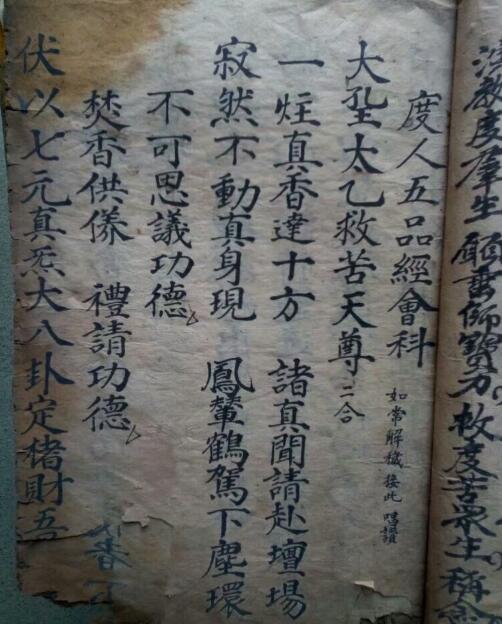 教度羣生 願垂師寶力 救度苦眾生 稱念
度人五品經會科
如常解穢接此 唱讚
大聖太乙救苦天尊 二合
一炷真香達十方 諸真聞請赴壇場
寂然不動真身現 鳳輦鶴駕下塵環
不可思議功德
焚香供儀 禮請功德 香
伏以七元真炁大八卦定